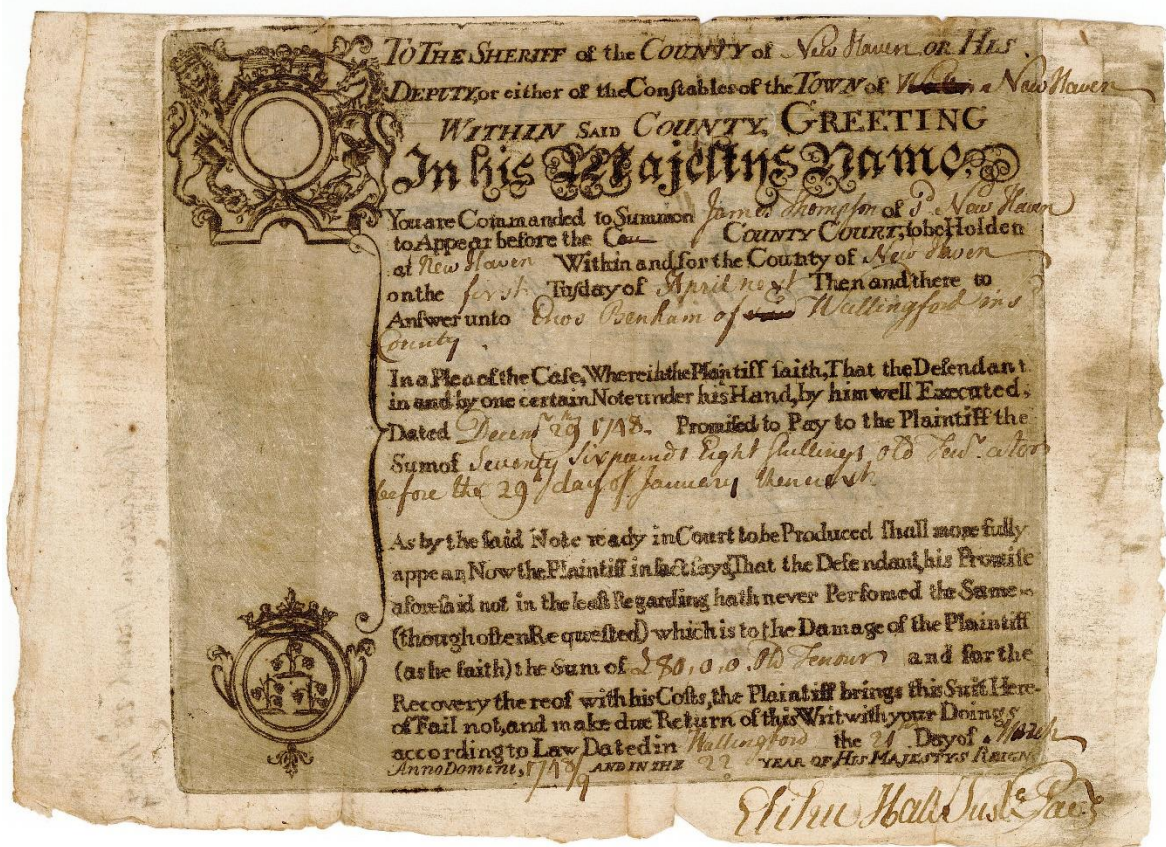 TO THE SHERIFF of the COUNTY of New Haven OR HIS
DEPUTY, or either of the Constables of the TOWN of New Haven
WITHIN SAID COUNTY, GREETING
In his Majestys Name.
You are Commanded to Summon James Thompson of sd New Haven
to Appear before the Cou COUNTY COURT, to be Holden
at New Haven Within and for the County of New Haven
on the first Tusday of April next Then and there to
Answer unto Enos Benham of Wallingford in sd
County.
In a Plea of the Case, Wherein the Plaintiff saith, That the Defendant
in and by one certain Note under his Hand, by him well Executed,
Dated Decemr 29th 1748. Promised to Pay to the Plaintiff the
Sum of Seventy Six pounds Eight Shillings old Tenr. at or
before the 29th day of January then next
As by the said Note ready in Court to be Produced shall more fully
appear, Now the Plaintiff in fact says, That the Defendant, his Promise
aforesaid not in the least Regarding hath never Perfomed the Same
(though often Requested) which is to the Damage of the Plaintiff
(as he saith) the Sum of £80,0,0 Old Tenour and for the
Recovery thereof with his Costs, the Plaintiff brings this Suit Here-
of Fail not, and make due Return of this Writ with your Doings
according to Law Dated in Wallingford the 21st Day of March
Anno Domini, 1748/9 AND IN THE 22 YEAR OF HIS MAJESTYS REIGN
Elihu Hall Juste Pace